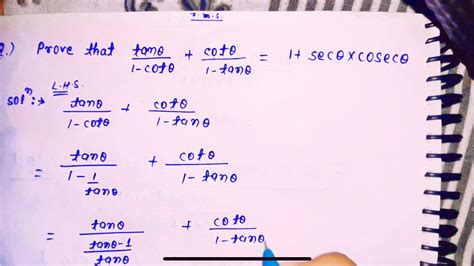 Q.) Prove that tanθ/1-cotθ + cotθ/1-tanθ = 1+ secθ×cosecθ
L.H.S.
solⁿ:→ tanθ/1-cotθ + cotθ/1-tanθ
= tanθ/1-1/tanθ + cotθ/1-tanθ
= tanθ/tanθ-1/tanθ + cotθ/1-tanθ